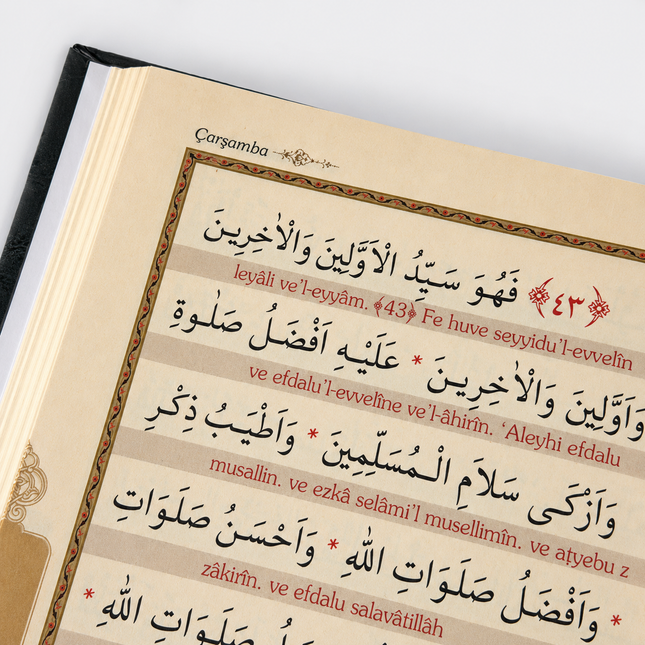 Çarşamba
﴿٤٣﴾ فَهُوَ سَيِّدُ الْاَوَّلِينَ وَالْاٰخِرِينَ
leyâli ve’l-eyyâm. ﴾43﴿ Fe huve seyyidu’l-evvelîn
وَاَوَّلِينَ وَالْاٰخِرِينَ * عَلَيْهِ اَفْضَلُ صَلٰوةِ
ve efdalu’l-evvelîne ve’l-âhirîn. ‘Aleyhi efdalu
وَاَزْكَى سَلَامِ الْمُسَلِّمِينَ * وَاَطْيَبُ ذِكْرِ
musallin. ve ezkâ selâmi’l musellimîn. ve aṭyebu z
* وَاَفْضَلُ صَلَوَاتِ اللّٰهِ * وَاَحْسَنُ صَلَوَاتِ
zâkirîn. ve efdalu salavâtillâh
صَلَوَاتِ اللّٰهِ *